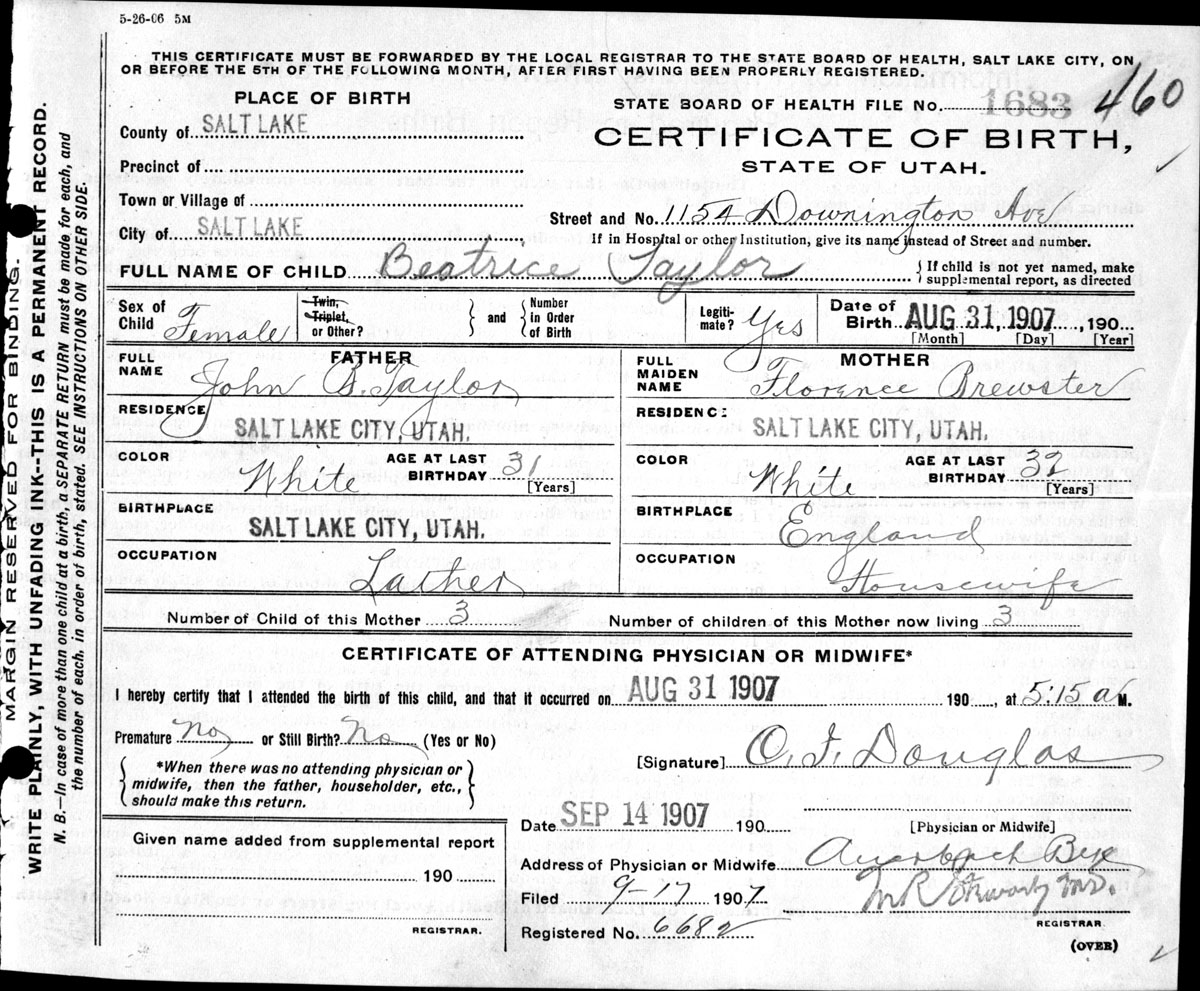 5-26-06 5M
THIS CERTIFICATE MUST BE FORWARDED BY THE LOCAL REGISTRAR TO THE STATE BOARD OF HEALTH, SALT LAKE CITY, ON
OR BEFORE THE 5TH OF THE FOLLOWING MONTH, AFTER FIRST HAVING BEEN PROPERLY REGISTERED.
PLACE OF BIRTH
STATE BOARD OF HEALTH FILE No. 1683 460
County of SALT LAKE
CERTIFICATE OF BIRTH,
Precinct of
STATE OF UTAH.
Town or Village of
Street and No. 1154 Downington Ave
City of SALT LAKE
If in Hospital or other Institution, give its name instead of Street and number.
FULL NAME OF CHILD Beatrice Taylor
If child is not yet named, make
supplemental report, as directed
Sex of Child Female
Twin,
Triplet,
or Other?
and
Number
in Order
of Birth
Legiti-
mate? Yes
Date of
Birth AUG 31, 1907, 190
[Month] [Day] [Year]
FATHER
FULL NAME John B. Taylor
RESIDENCE
SALT LAKE CITY, UTAH.
COLOR White
AGE AT LAST BIRTHDAY 31
[Years]
BIRTHPLACE
SALT LAKE CITY, UTAH.
OCCUPATION
Lather
MOTHER
FULL MAIDEN NAME Florence Brewster
RESIDENCE
SALT LAKE CITY, UTAH.
COLOR White
AGE AT LAST BIRTHDAY 32
[Years]
BIRTHPLACE
England
OCCUPATION
Housewife
Number of Child of this Mother 3 Number of children of this Mother now living 3
CERTIFICATE OF ATTENDING PHYSICIAN OR MIDWIFE*
I hereby certify that I attended the birth of this child, and that it occurred on AUG 31 1907 190 , at 5:15 a M.
Premature No or Still Birth? No (Yes or No)
[Signature] O. J. Douglas
*When there was no attending physician or
midwife, then the father, householder, etc.,
should make this return.
Date SEP 14 1907 190
[Physician or Midwife]
Given name added from supplemental report
190
REGISTRAR.
Address of Physician or Midwife Auerbach
Filed 9-17 1907
REGISTRAR
Registered No. 6682
(OVER)
MARGIN RESERVED FOR BINDING.
WRITE PLAINLY, WITH UNFADING INK--THIS IS A PERMANENT RECORD.
N. B.—In case of more than one child at a birth, a SEPARATE RETURN must be made for each, and
the number of each. in order of birth, stated. SEE INSTRUCTIONS ON OTHER SIDE.